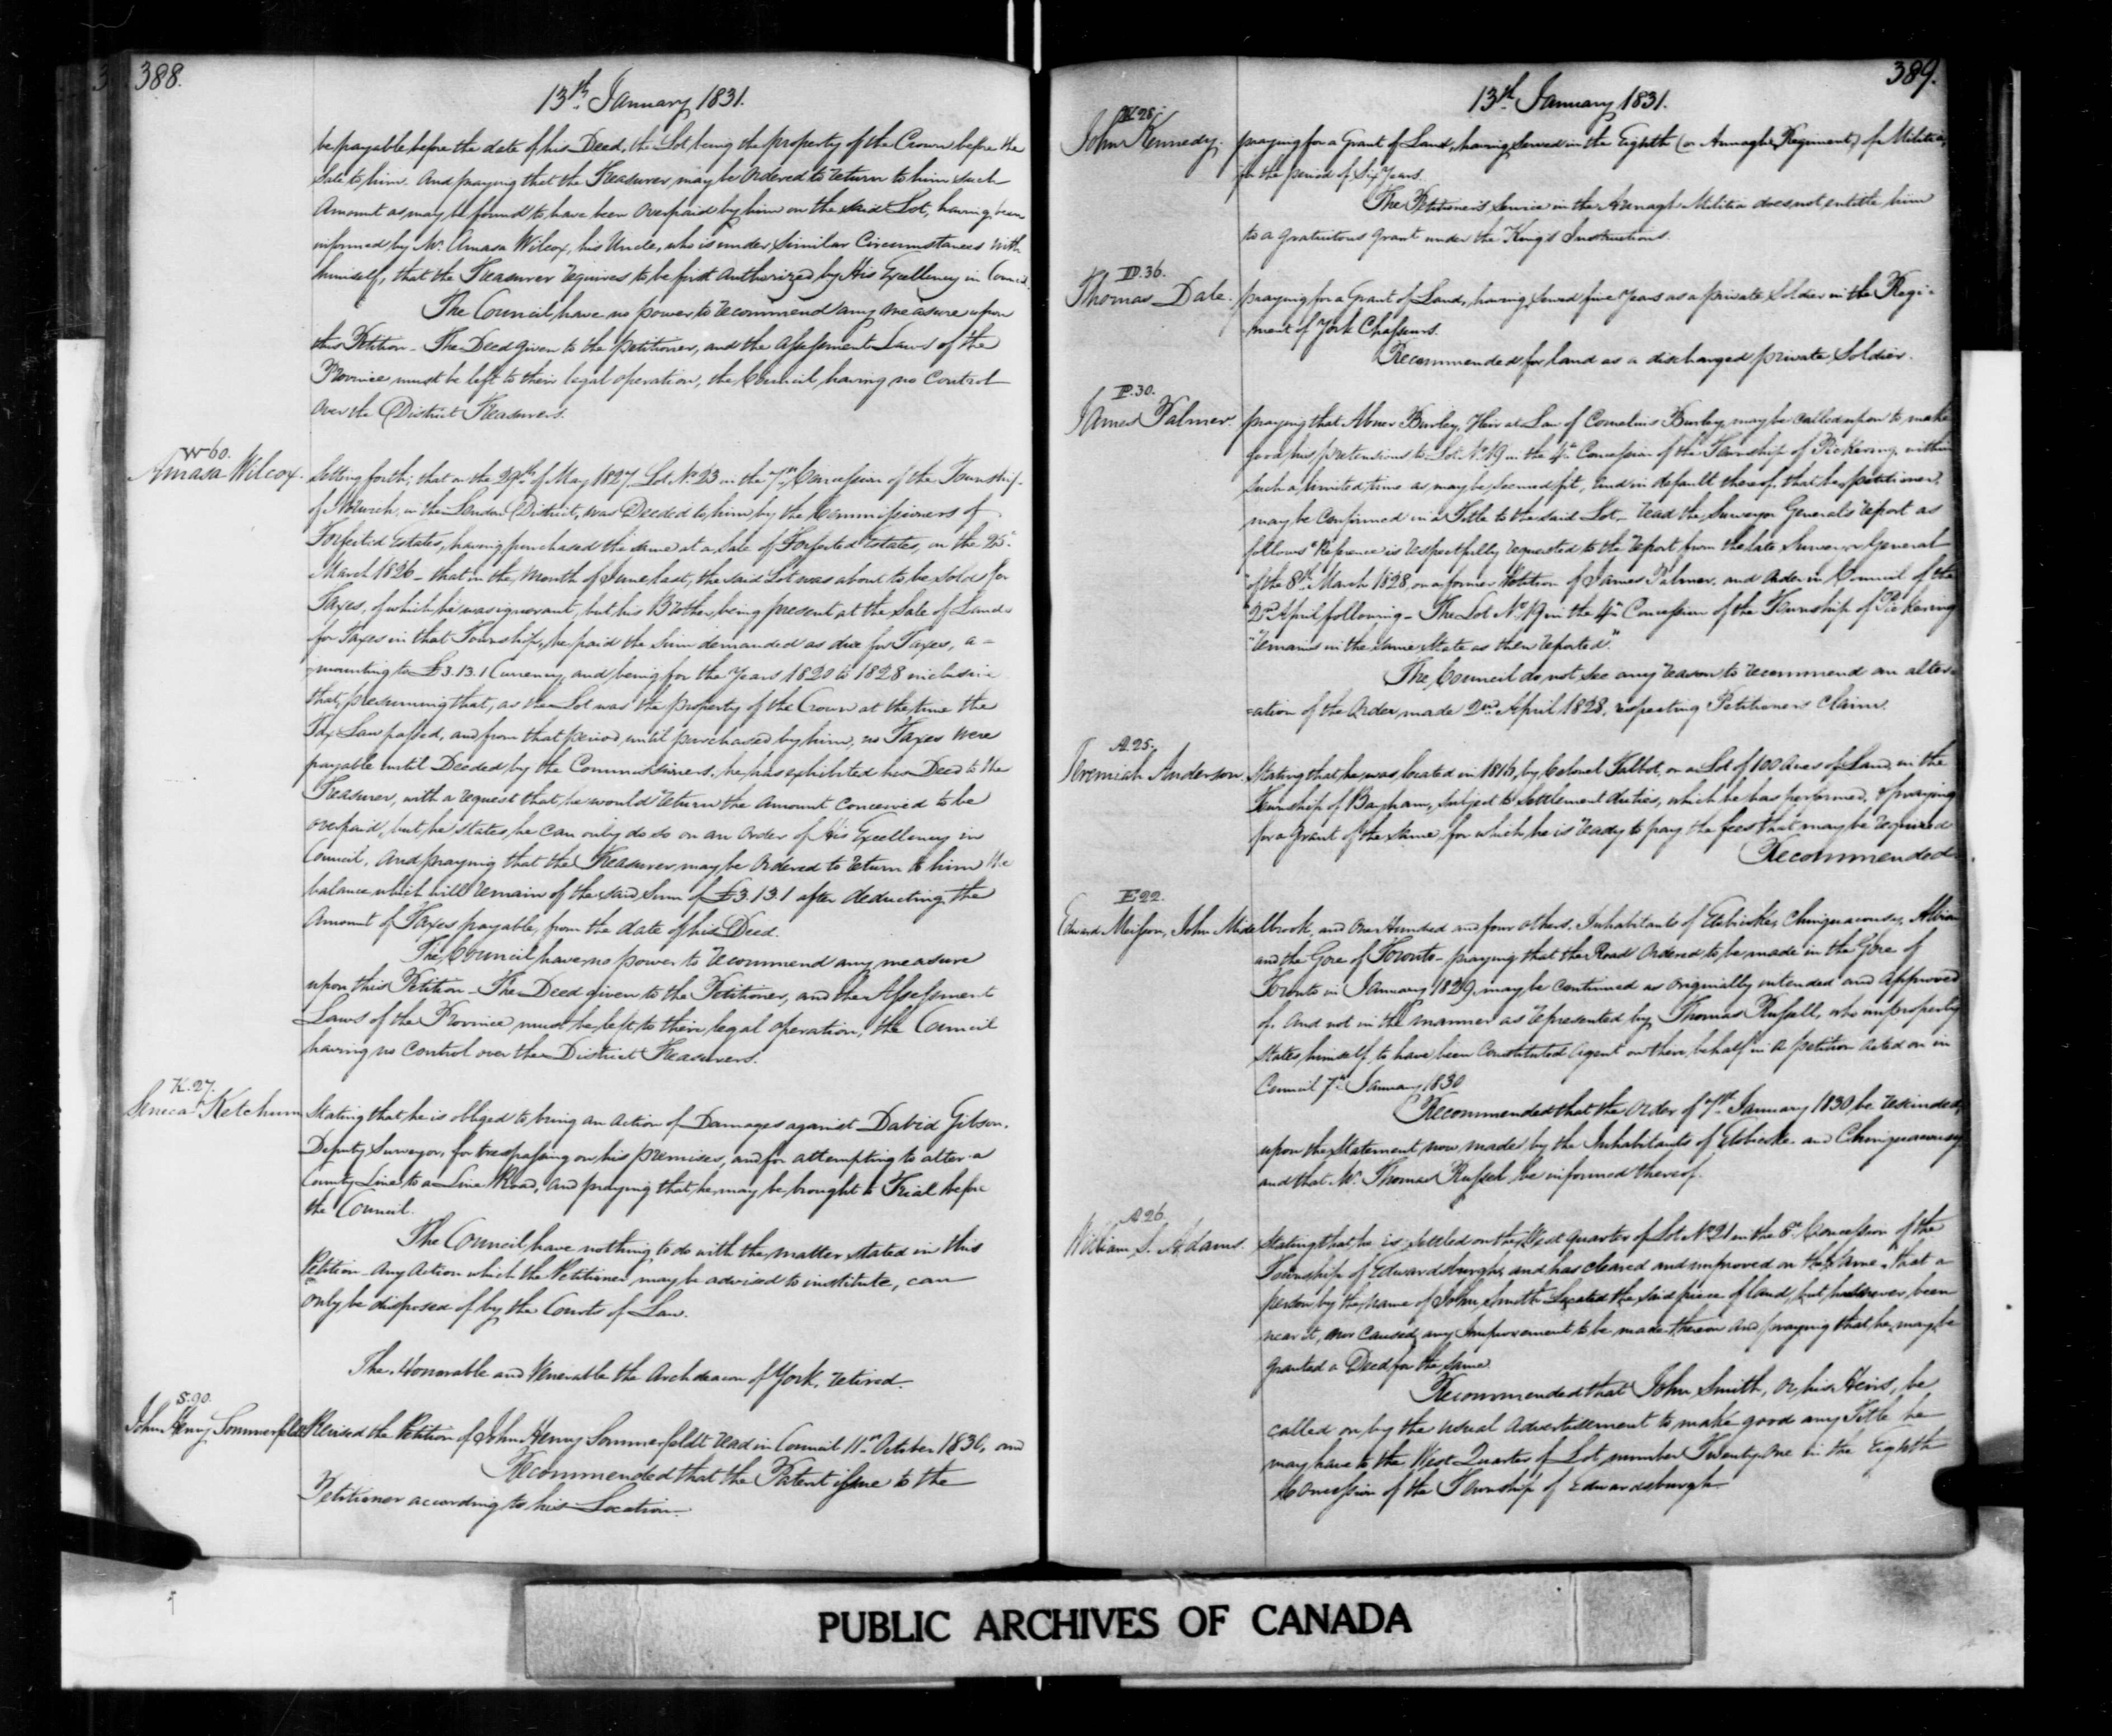 388.
13th January 1831.
be payable before the date of his Deed, the Lot being the property of the Crown before the
Sale to him. And praying that the Treasurer may be Ordered to return to him such
Amount as may be found to have been Overpaid by him on the said Lot, having been
informed by Mr. Amasa Wilcox, his Uncle, who is under similar Circumstances with
himself, that the Treasurer requires to be first Authorized by His Excellency in Council.
The Council have no power to recommend any measure upon
this Petition - The Deed given to the petitioner, and the Assessment Laws of the
Province must be left to their legal operation, the Council having no Control
over the District Treasurers.
W 60.
Amasa Wilcox. Setting forth; that on the 29th of May 1827 Lot No. 23 in the 7th Concession of the Township
of Norwich, in the London District, was Deeded to him by the Commissioners of
Forfeited Estates, having purchased the same at a Sale of Forfeited Estates, on the 25th
March 1826 - that in the Month of June last, the said Lot was about to be sold for
Taxes, of which he was ignorant, but his Brother being present at the Sale of Lands
for Taxes in that Township, he paid the Sum demanded as due for Taxes, a =
mounting to £3.13.1 Currency, and being for the Years 1820 to 1828 inclusive
that, presuming that, as the Lot was the property of the Crown at the time the
Tax Law passed, and from that period until purchased by him, no Taxes were
payable until Deeded by the Commissioners, he has exhibited his Deed to the
Treasurer, with a request that he would return the Amount conceived to be
overpaid, but he states he can only do so on an Order of His Excellency in
Council, And praying that the Treasurer may be Ordered to return to him the
balance which will remain of the said Sum of £3.13.1 after deducting the
Amount of Taxes payable, from the date of his Deed.
The Council have no power to recommend any measure
upon this Petition - The Deed given to the Petitioner, and the Assessment
Laws of the Province must be left to their legal operation, the Council
having no Control over the District Treasurers.
K. 27.
Seneca Ketchum Stating that he is obliged to bring an Action of Damages against David Gibson,
Deputy Surveyor, for trespassing on his premises, and for attempting to alter a
County Line to a Line Road, And praying that he may be brought to Trial before
the Council.
The Council have nothing to do with the matter stated in this
Petition - Any Action which the Petitioner may be advised to institute, can
only be disposed of by the Courts of Law.
The Honorable and Venerable the Archdeacon of York, retired.
S. 90.
John Henry Sommerfeldt Revised the Petition of John Henry Sommerfeldt read in Council 11th October 1830, and
Recommended that the Patent issue to the
Petitioner according to his Location.
389.
13th January 1831.
K 28.
John Kennedy. praying for a Grant of Land, having served in the Eighth (or Armagh Regiment) of Militia,
for the period of Six Years.
The Petitioner's Service in the Armagh Militia does not entitle him
to a gratuitous grant under the King's Instructions.
D. 36.
Thomas Date. praying for a Grant of Land, having served five Years as a private Soldier in the Regi=
ment of York Chasseurs.
Recommended for land as a discharged private Soldier.
P. 30.
James Palmer. praying that Abner Burley, Heir at Law of Cornelius Burley may be called upon to make
good his pretensions to Lot No. 19 in the 4th Concession of the Township of Pickering, within
such a limited time as may be deemed fit, and in default thereof, that he, petitioner,
may be Confirmed in a Title to the said Lot - read the Surveyor General's report as
follows "Reference is respectfully requested to the report from the late Surveyor General
"of the 8th March 1828, on a former Petition of James Palmer, and Order in Council of the
"2nd April following - The Lot No. 19 in the 4th Concession of the Township of Pickering
"remains in the same State as then reported".
The Council do not see any reason to recommend an alter=
=ation of the Order, made 2nd April 1828, respecting Petitioner's Claim.
A. 25.
Jeremiah Anderson. Stating that he was located in 1816, by Colonel Talbot, on a Lot of 100 Acres of Land, in the
Township of Bayham, subject to Settlement duties, which he has performed, & praying
for a grant of the same, for which he is ready to pay the fees that may be required
Recommended.
E 22.
Edward Meisson, John Midelbrook, and One Hundred and four others, Inhabitants of Etobicoke, Chinguacousy, Albion
and the Gore of Toronto - praying that the Road Ordered to be made in the Gore of
Toronto in January 1829, may be Continued as originally intended and Approved
of, And not in the manner as represented by Thomas Russell, who improperly
states himself, to have been Constituted Agent on their behalf in a petition acted on in
Council 7th January 1830
Recommended that the Order of 7th January 1830, be rescinded,
upon the Statement now made by the Inhabitants of Etobicoke and Chinguacousy
and that Mr. Thomas Russel be informed thereof.
A 26.
William S. Adams. Stating that he is settled on the West quarter of Lot No. 21 in the 8th Concession of the
Township of Edwardsburgh, and has cleared and improved on the same, that a
person by the name of John Smith Located the said piece of land, but has never been
near it, nor caused any Improvement to be made thereon And praying that he may be
granted a Deed for the same.
Recommended that John Smith, or his Heirs, be
called on by the usual Advertisement to make good any Title he
may have to the West Quarter of Lot number Twenty One in the Eighth
Concession of the Township of Edwardsburgh.
PUBLIC ARCHIVES OF CANADA